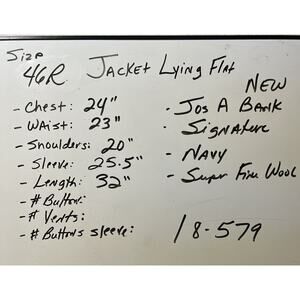 Size
46R Jacket Lying Flat
NEW
- Chest: 24"
- Waist: 23"
- Shoulders: 20"
- Sleeve: 25.5"
- Length: 32"
- # Button:
- # Vents:
- # Buttons sleeve:
- Jos A Bank
- Signature
- Navy
- Super Fine Wool
18-579